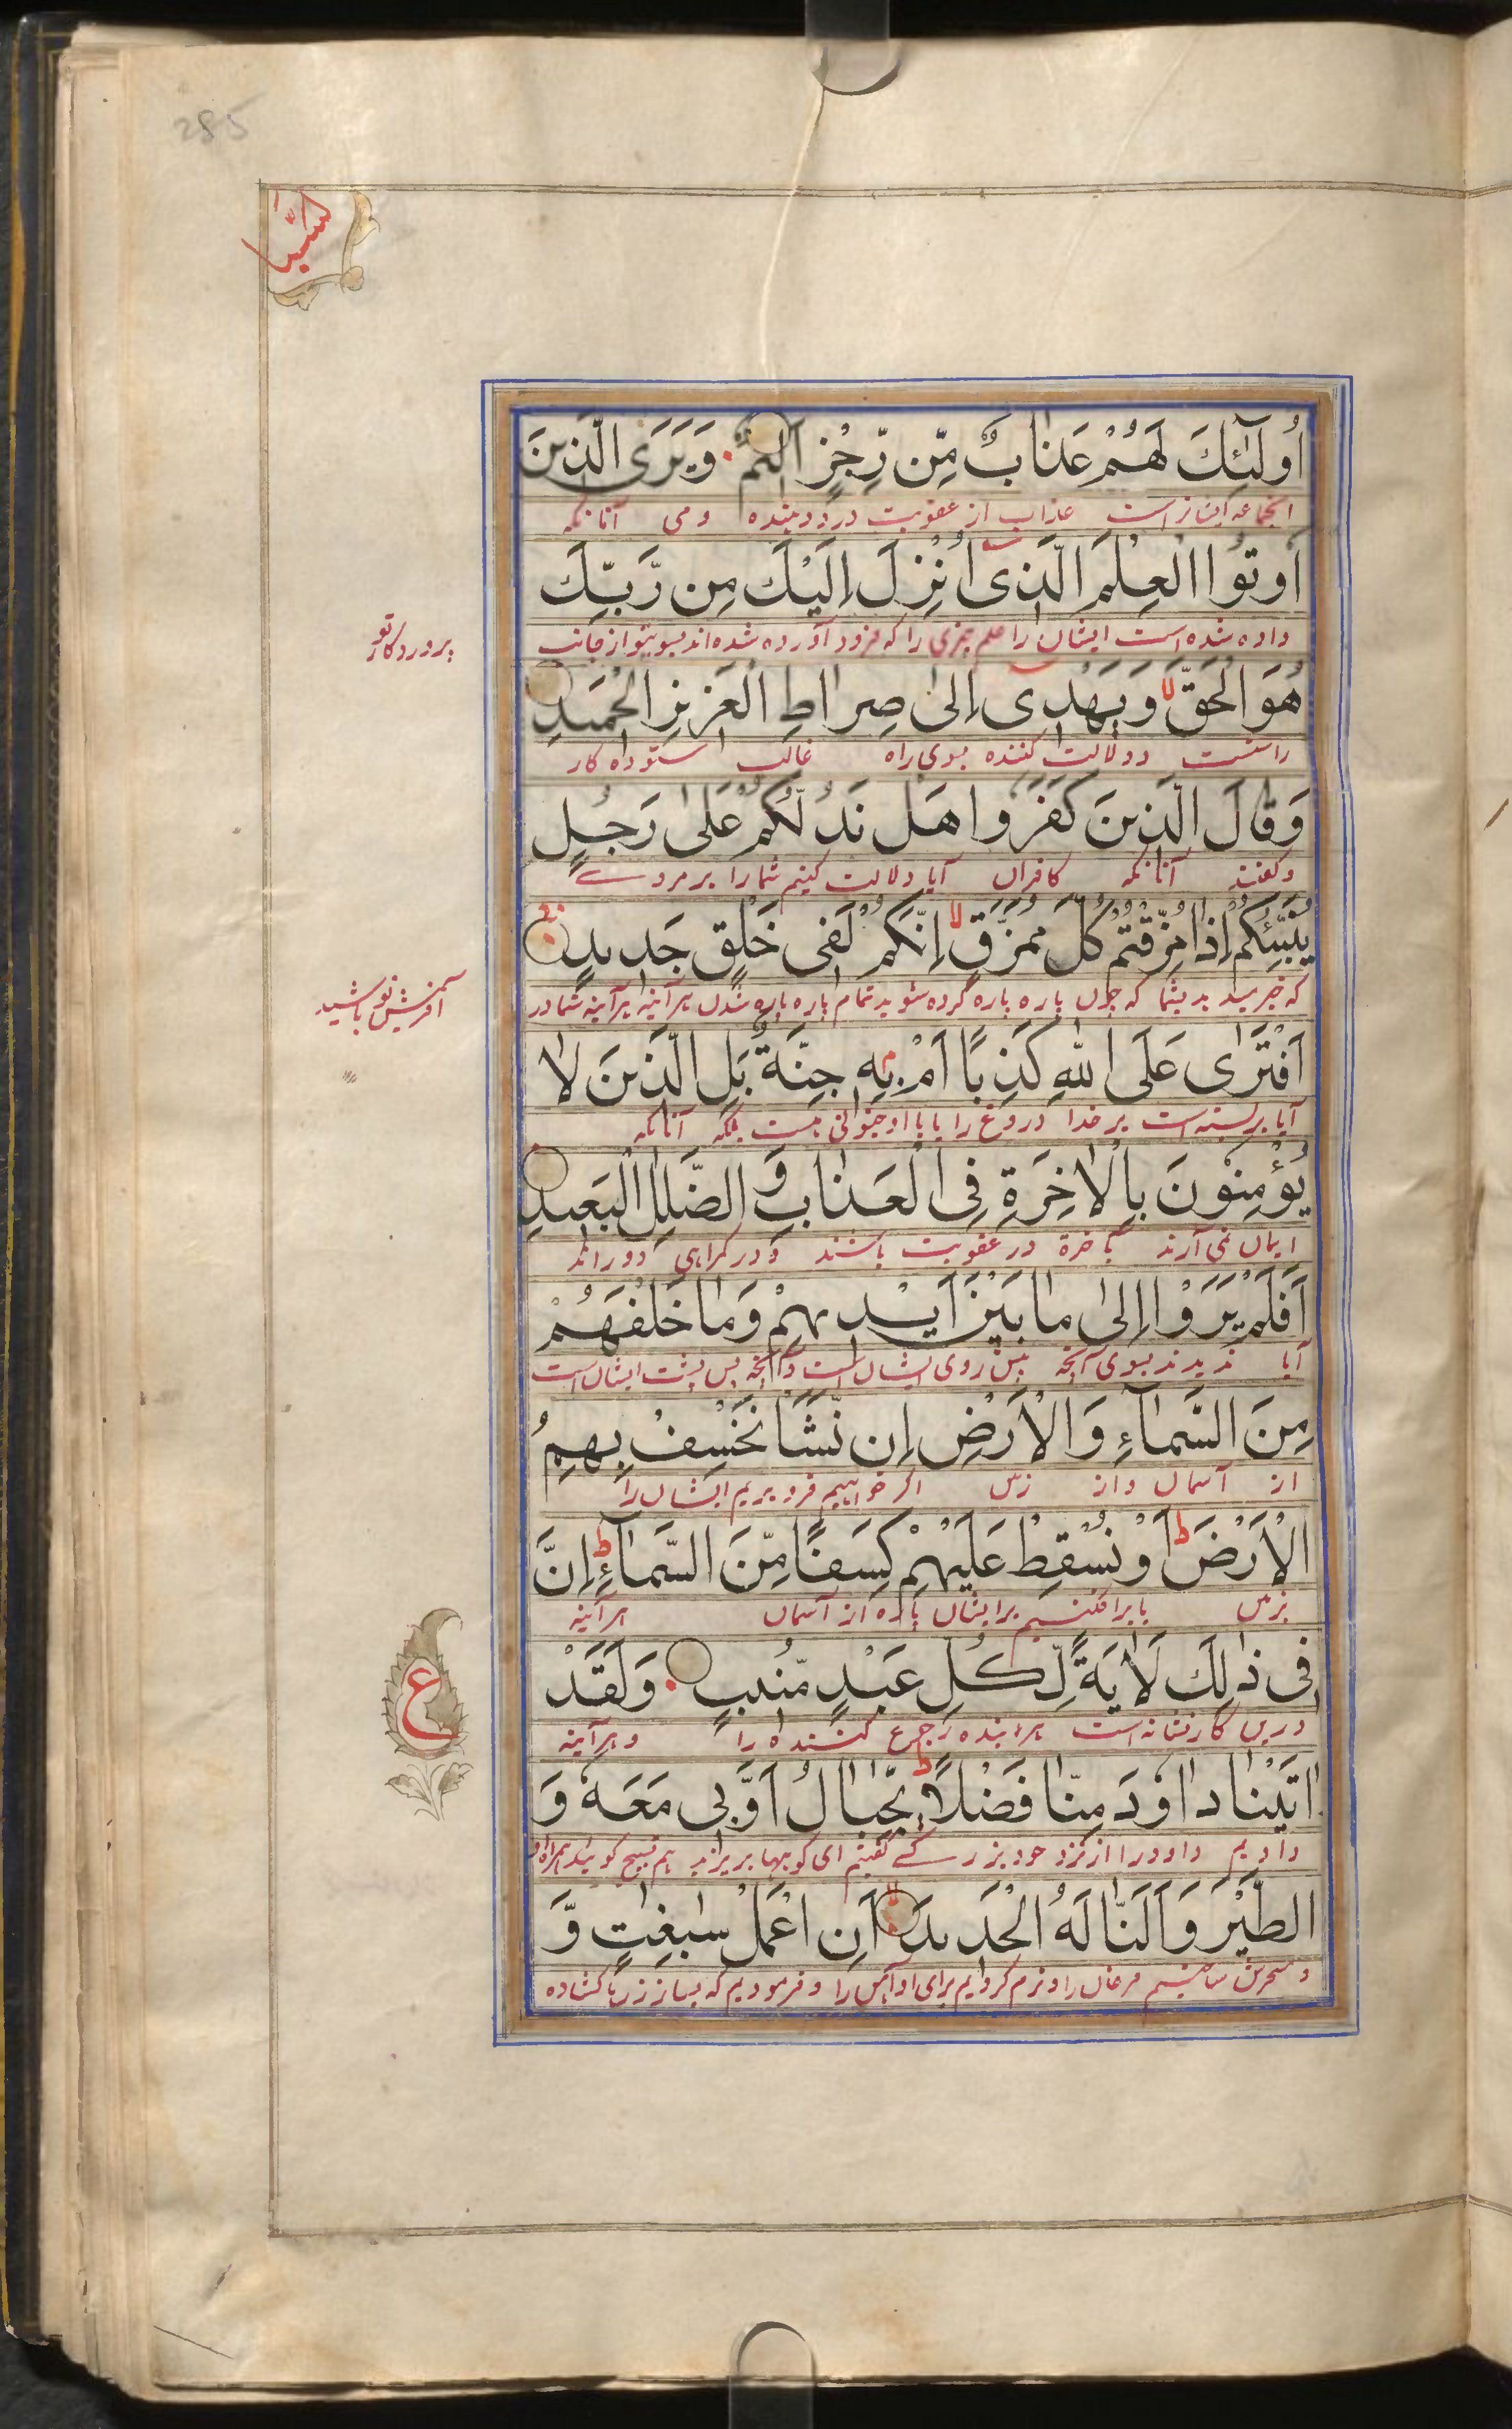 285
سَبَا
أُولَٰئِكَ لَهُمْ عَذَابٌ مِّن رِّجْزٍ أَلِيمٌ وَيَرَى الَّذِينَ
آنجماعه ایشانراست عذاب از عقوبت درد دهنده و می آنانکه
أُوتُوا الْعِلْمَ الَّذِي أُنْزِلَ إِلَيْكَ مِن رَّبِّكَ
داده شده است ایشان را علم چیزی را که فرود آورده شده اند بسوی تو از جانب
پروردگار تو
هُوَ الْحَقَّ لا وَيَهْدِي إِلَىٰ صِرَاطِ الْعَزِيزِ الْحَمِيدِ
راست و دلالت کننده بسوی راه غالب ستوده کار
وَقَالَ الَّذِينَ كَفَرُوا هَلْ نَدُلُّكُمْ عَلَىٰ رَجُلٍ
و گفتند آنانکه کافران آیا دلالت کنیم شما را بر مردے
يُنَبِّئُكُمْ إِذَا مُزِّقْتُمْ كُلَّ مُمَزَّقٍ لا إِنَّكُمْ لَفِي خَلْقٍ جَدِيدٍ
که خبر میدهد بشما که چون پاره پاره کرده شوید تمام پاره پاره شدن هر آئینه هر آینه شما در
آفرینش نو باشید
أَفْتَرَىٰ عَلَى اللَّهِ كَذِبًا أَمْ بِهِ جِنَّةٌ بَلِ الَّذِينَ لَا
آیا بر بسته است بر خدا دروغ را یا با او جنونی هست بلکه آنانکه
يُؤْمِنُونَ بِالْآخِرَةِ فِي الْعَذَابِ وَالضَّلَٰلِ الْبَعِيدِ
ایمان نمی آرند بآخرة در عقوبت باشند و در گمراهی دور اند
أَفَلَمْ يَرَوْا إِلَىٰ مَا بَيْنَ أَيْدِيهِمْ وَمَا خَلْفَهُمْ
آیا ندیدند بسوی آنچه پیش روی ایشان است و آنچه پس پشت ایشان است
مِنَ السَّمَاءِ وَالْأَرْضِ إِن نَّشَأْ نَخْسِفْ بِهِمُ
از آسمان و از زمین اگر خواهیم فرو بریم ایشان را
الْأَرْضَ ط أَوْ نُسْقِطْ عَلَيْهِمْ كِسَفًا مِّنَ السَّمَاءِ ط إِنَّ
بزمین یا بر افکنیم بر ایشان پاره از آسمان هر آئینه
فِي ذَٰلِكَ لَآيَةً لِّكُلِّ عَبْدٍ مُّنِيبٍ وَلَقَدْ
ع
درین کار نشانه است هر بنده رجوع کننده را و هر آینه
اٰتَيْنَا دَاوُدَ مِنَّا فَضْلًا ط يٰجِبَالُ أَوِّبِي مَعَهُ وَ
دادیم داود را از نزد خود بزرگے گفتیم ای کوهها هم تسبیح گویند همراه او
الطَّيْرَ وَأَلَنَّا لَهُ الْحَدِيدَ أَنِ اعْمَلْ سَٰبِغَٰتٍ وَّ
و مسخرش ساختیم مرغان را و نرم کردیم برای او آهن را و فرمودیم که بساز زرها کشاده